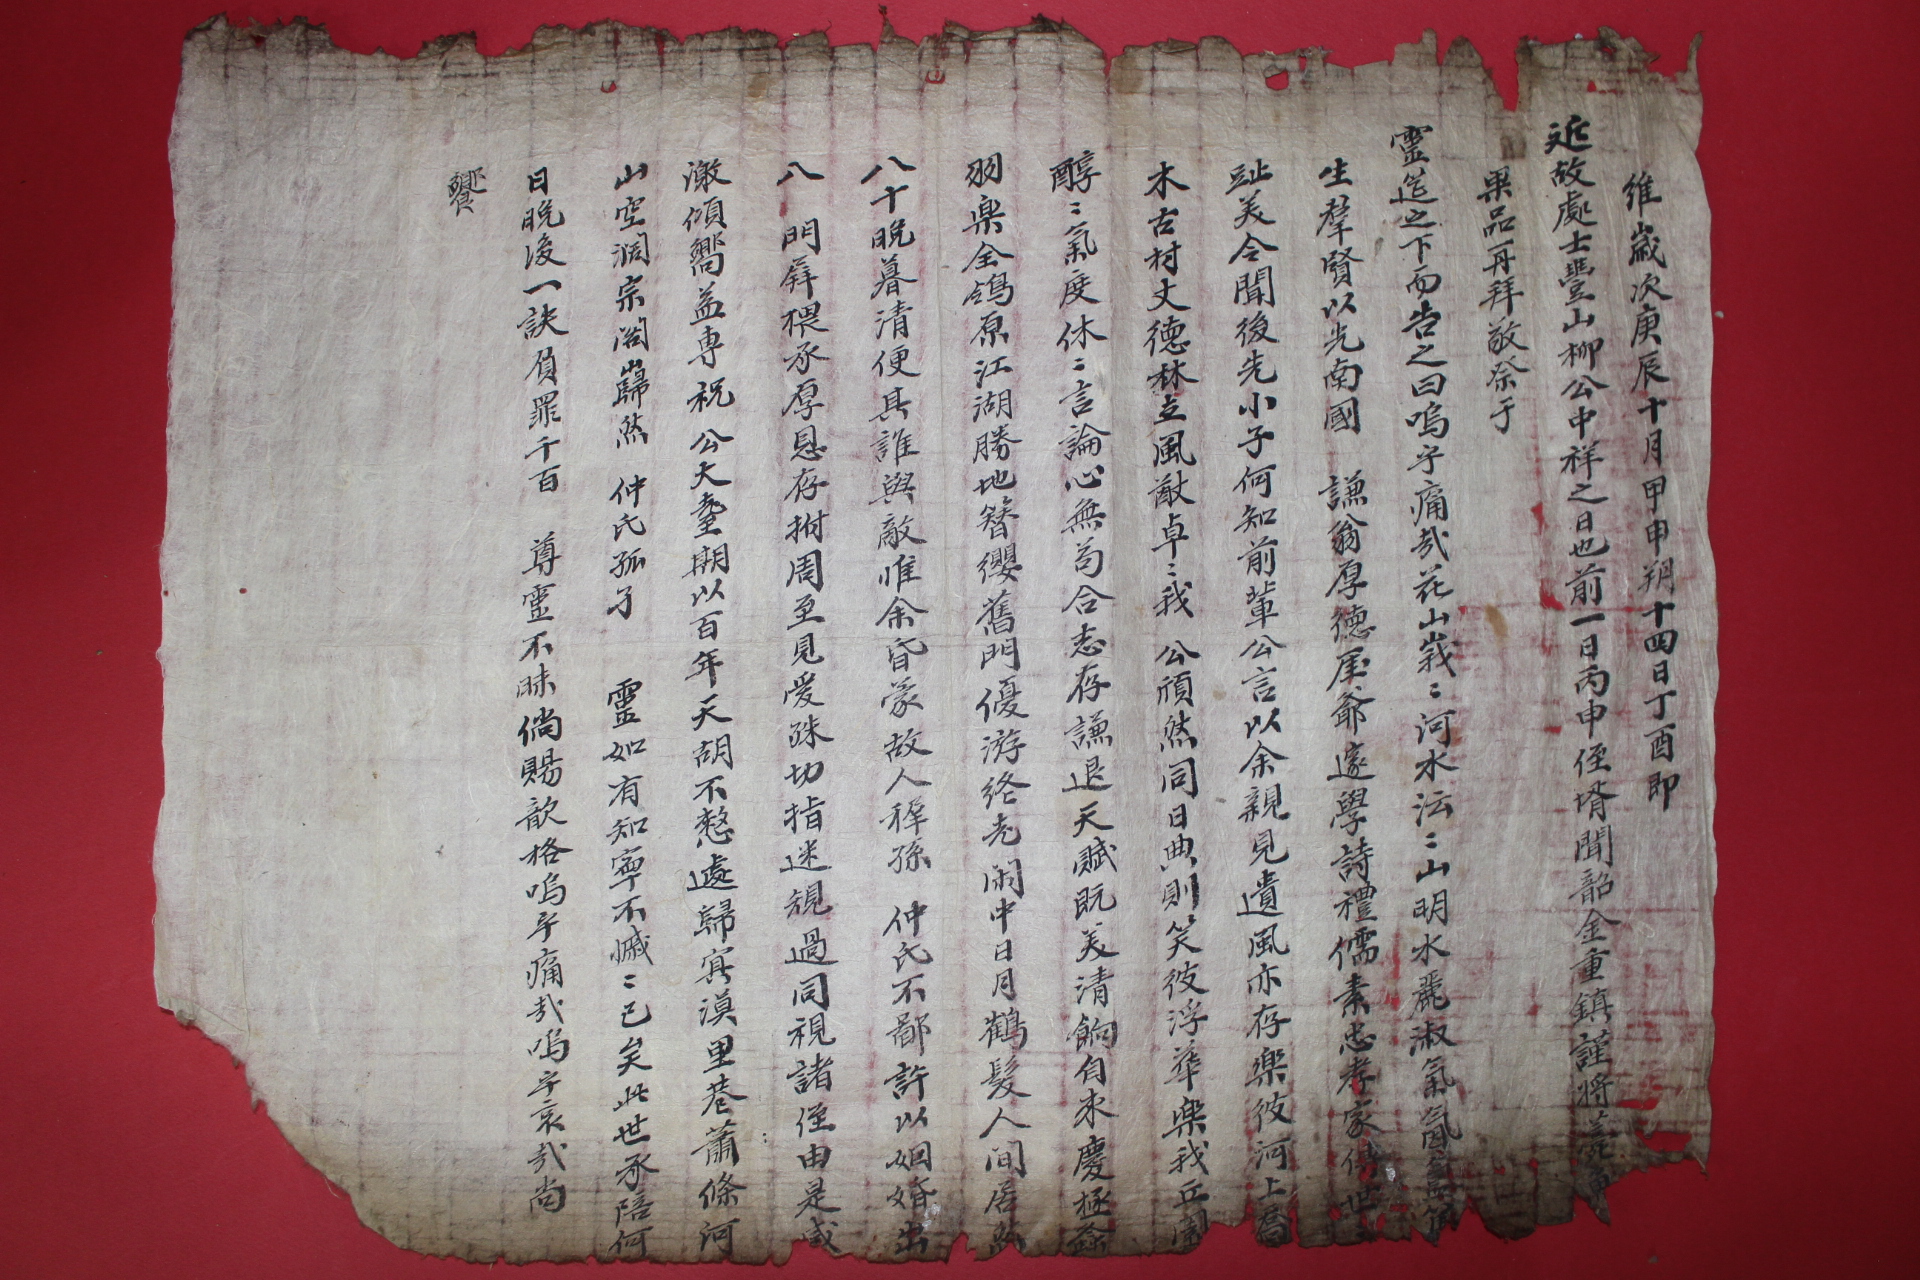 維歲次庚辰十月甲申朔十四日丁酉即
近故處士豐山柳公中祥之日也前一日丙申侄壻聞韶金重鎭謹將
果品再拜敬祭于
靈筵之下而告之曰嗚乎痛哉花山峩〻河水沄〻山明水麗淑氣氤氳
生羣賢以先南國 謙翁厚德厓爺邃學詩禮儒素忠孝家傳世
趾美令聞後先小子何知前輩公言以余親見遺風亦存樂彼河上喬
木古村丈德林立風猷卓〻我 公頎然同日典則笑彼浮華樂我丘園
醇〻氣度休〻言論心無苟合志存謙退天賦既美清餉自來慶極
羽樂全鴒原江湖勝地簪纓舊門優游終老閑中日月鶴髮人間居然
八十晩暮清便其誰與敵惟余昏蒙故人穉孫 仲氏不鄙許以姻婚出
八 門屛猥承厚恩存拊周至見愛殊切指迷規過同視諸侄由是感
激傾嚮益專祝 公大耋期以百年天胡不憖遽歸冥漠里巷蕭條河
山空濶宗閤巋然 仲氏孤孑 靈如有知寧不慽〻已矣此世承陪何
日晩後一訣負罪千百 尊靈不昧倘賜歆格嗚乎痛哉嗚乎哀哉尚
饗